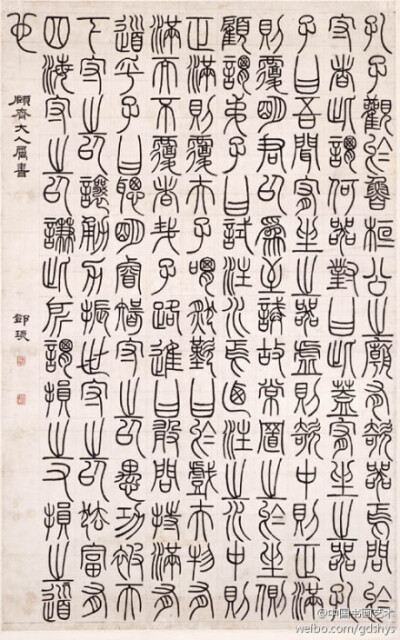 孔子觀於魯桓公之廟有欹器焉問於
守者此謂何器對曰此蓋宥坐之器孔
子曰吾聞宥坐之器虛則欹中則正滿
則覆明君以為至誡故常置之於坐側
顧謂弟子曰試注水焉乃注之水中則
正滿則覆夫子喟然歎曰於戲夫物有
滿而不覆者哉子路進曰敢問持滿有
道乎子曰聰明睿智守之以愚功被天
下守之以讓勇力振世守之以怯富有
四海守之以謙此所謂損之又損之道
也
顧齋大人屬書
鄧琰
@中国书画艺术
weibo.com/gdshys